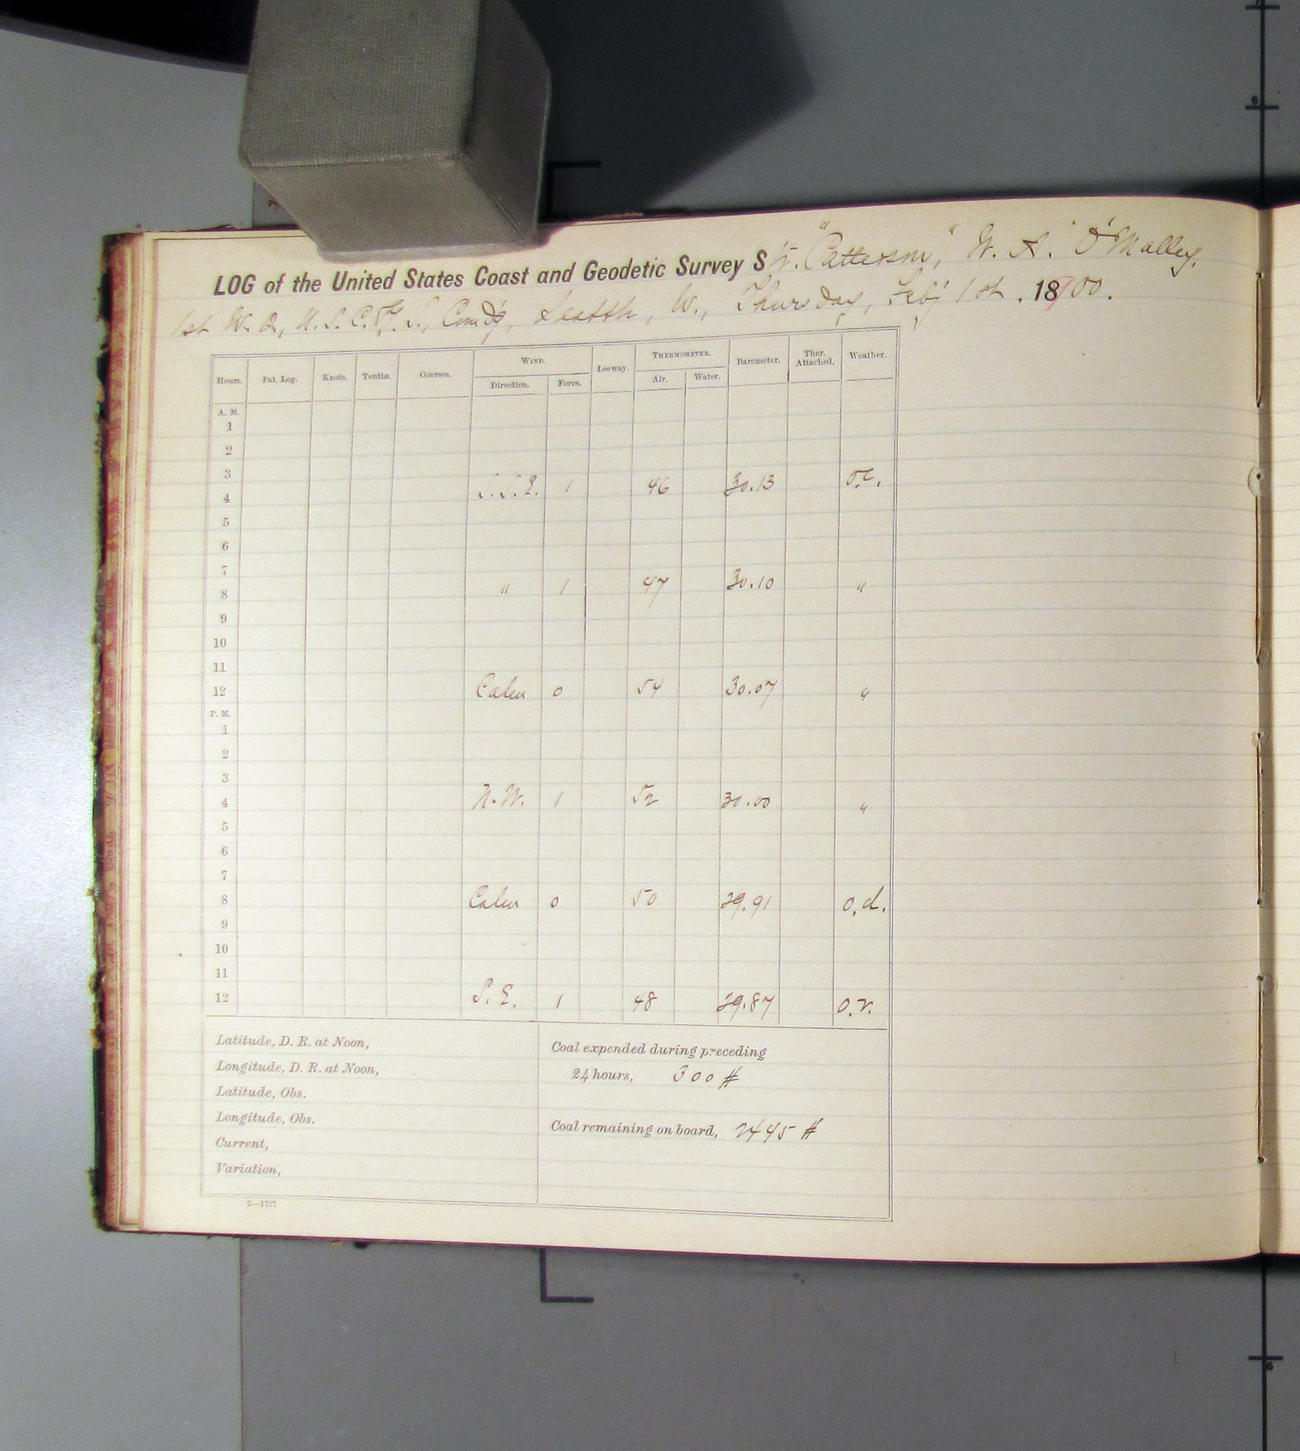 LOG of the United States Coast and Geodetic Survey Str. "Patterson," W. A. O'Malley,
1st W. O., U.S.C.&G.S., Comd'g, Seattle, W., Thursday, Feby 1st, 1900.
Hours. Pat. Log. Knots. Tenths. Courses. WIND. Leeway. THERMOMETER. Barometer. Ther. Attached. Weather.
Direction. Force. Air. Water.
A. M.
1
2
3
4 S.S.E. 1 46 30.13 o.c.
5
6
7
8 " 1 47 30.10 "
9
10
11
12 Calm 0 54 30.07 "
P. M.
1
2
3
4 N.W. 1 52 30.00 "
5
6
7
8 Calm 0 50 29.91 o.d.
9
10
11
12 S.E. 1 48 29.87 o.r.
Latitude, D. R. at Noon,
Longitude, D. R. at Noon,
Latitude, Obs.
Longitude, Obs.
Current,
Variation,
Coal expended during preceding
24 hours, 300 #
Coal remaining on board, 2445 #
2—1727
6
6